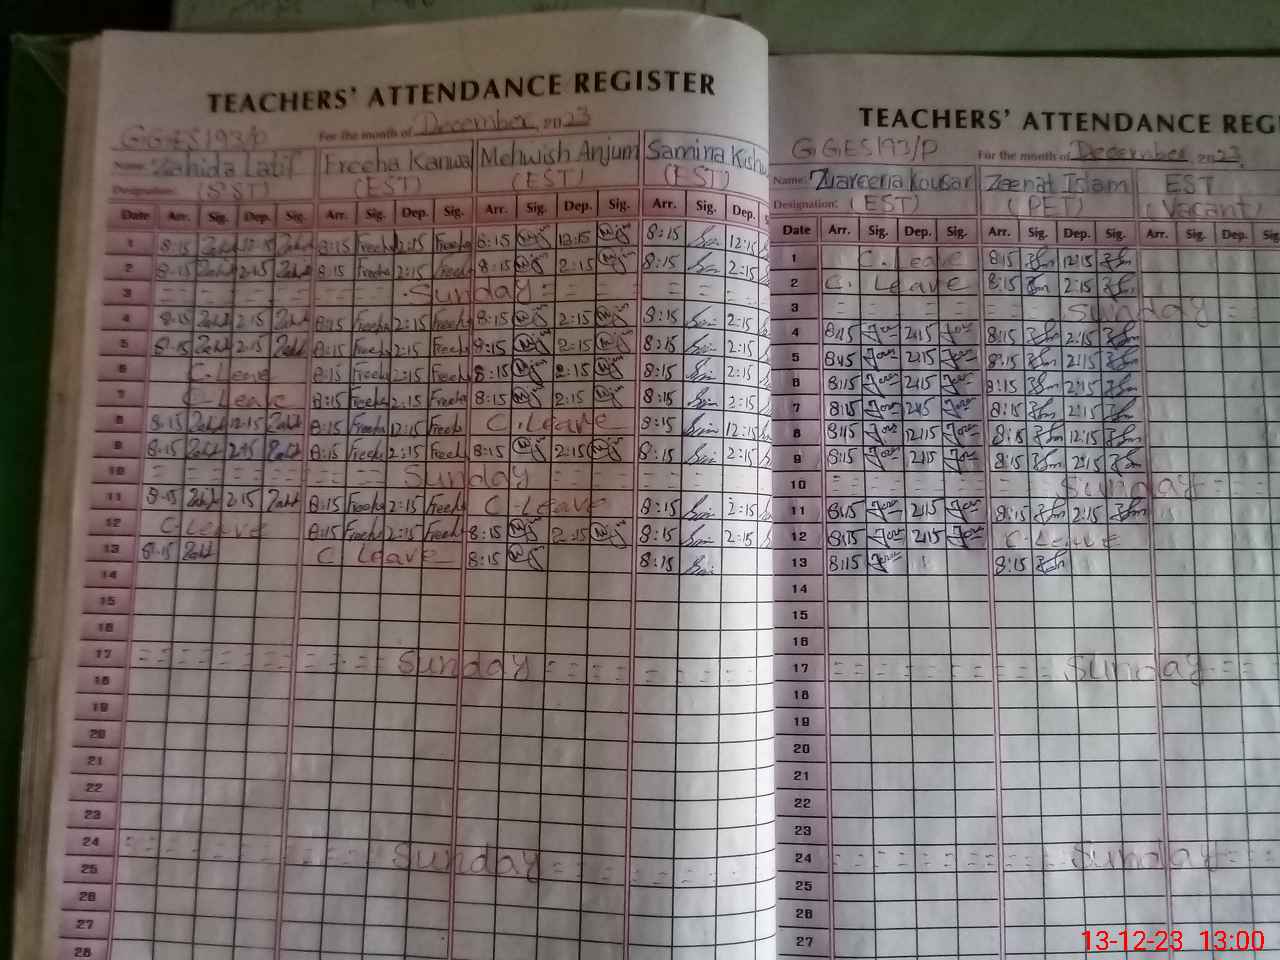 TEACHERS' ATTENDANCE REGISTER
GGES 193/P For the month of December 2023
Name: Zahida Latif Freeha Kanwal Mehwish Anjum Samina Kishw
Designation: (SST) (EST) (EST) (EST)
Date Arr. Sig. Dep. Sig. Arr. Sig. Dep. Sig. Arr. Sig. Dep. Sig. Arr. Sig. Dep. S
1 8:15 Zahd 12:15 Zahd 8:15 Freeha 12:15 Freeha 8:15 12:15 8:15 12:15
2 8:15 Zahd 2:15 Zahd 8:15 Freeha 2:15 Freeha 8:15 2:15 8:15 2:15
3 = = = = = = Sunday = = = = = =
4 8:15 Zahd 2:15 Zahd 8:15 Freeha 2:15 Freeha 8:15 2:15 8:15 2:15
5 8:15 Zahd 2:15 Zahd 8:15 Freeha 2:15 Freeha 8:15 2:15 8:15 2:15
6 C.Leave 8:15 Freeha 2:15 Freeha 8:15 2:15 8:15 2:15
7 C Leave 8:15 Freeha 2:15 Freeha 8:15 2:15 8:15 2:15
8 8:15 Zahd 12:15 Zahd 8:15 Freeha 12:15 Freeha C.Leave 8:15 12:15
9 8:15 Zahd 2:15 Zahd 8:15 Freeha 2:15 Freeha 8:15 2:15 8:15 2:15
10 = = = = = = Sunday = = = = =
11 8:15 Zahd 2:15 Zahd 8:15 Freeha 2:15 Freeha C.Leave 8:15 2:15
12 C.Leave 8:15 Freeha 2:15 Freeha 8:15 2:15 8:15 2:15
13 8:15 Zahd C Leave 8:15 8:15
14
15
16
17 = = = = = = = Sunday = = = = = = =
18
19
20
21
22
23
24 = = = = = = = Sunday = = = = = = =
25
26
27
28
TEACHERS' ATTENDANCE REG
GGES 193/P For the month of December 2023
Name: Zuareena Kousar Zeenat Islam EST
Designation: (EST) (PET) (Vacant)
Date Arr. Sig. Dep. Sig. Arr. Sig. Dep. Sig. Arr. Sig. Dep. Sig
1 C.Leave 8:15 12:15
2 C. Leave 8:15 2:15
3 = = = = = = Sunday =
4 8:15 2:15 8:15 2:15
5 8:15 2:15 8:15 2:15
6 8:15 2:15 8:15 2:15
7 8:15 2:15 8:15 2:15
8 8:15 12:15 8:15 12:15
9 8:15 2:15 8:15 2:15
10 = = = = = = Sunday = =
11 8:15 2:15 8:15 2:15
12 8:15 2:15 C.Leave
13 8:15 8:15
14
15
16
17 = = = = = = Sunday = =
18
19
20
21
22
23
24 = = = = = = Sunday = =
25
26
27
13-12-23 13:00